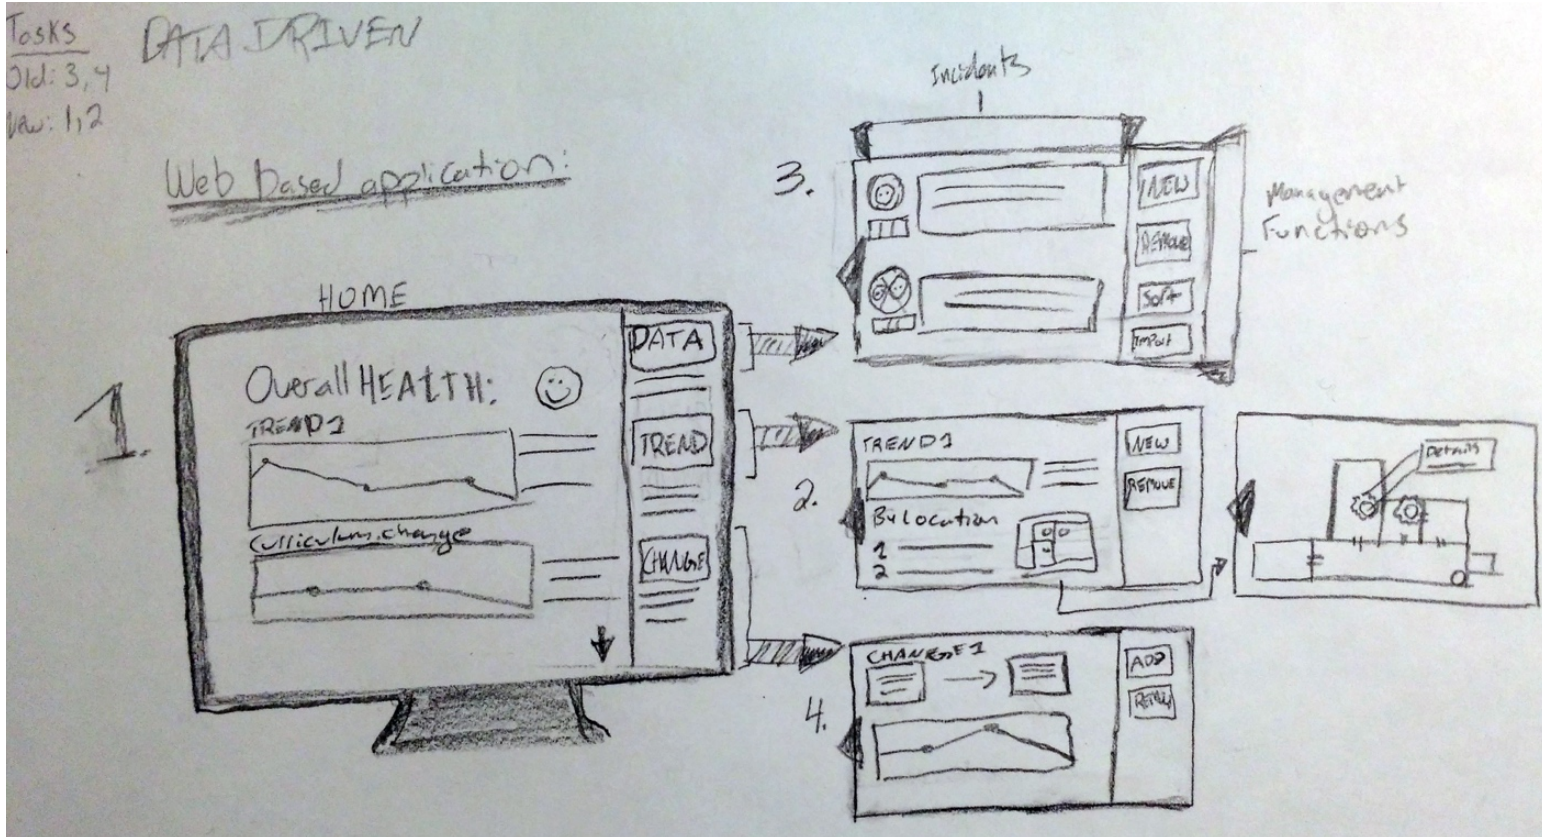 Tasks
Old: 3,4
New: 1,2
DATA DRIVEN
Web based application:
1.
HOME
Overall HEALTH:
TREND1
Curriculum change
DATA
TREND
CHANGE
3.
Incidents
NEW
REMOVE
Sort
Import
Management
Functions
2.
TREND1
By Location
1
2
NEW
REMOVE
Details
4.
CHANGE1
ADD